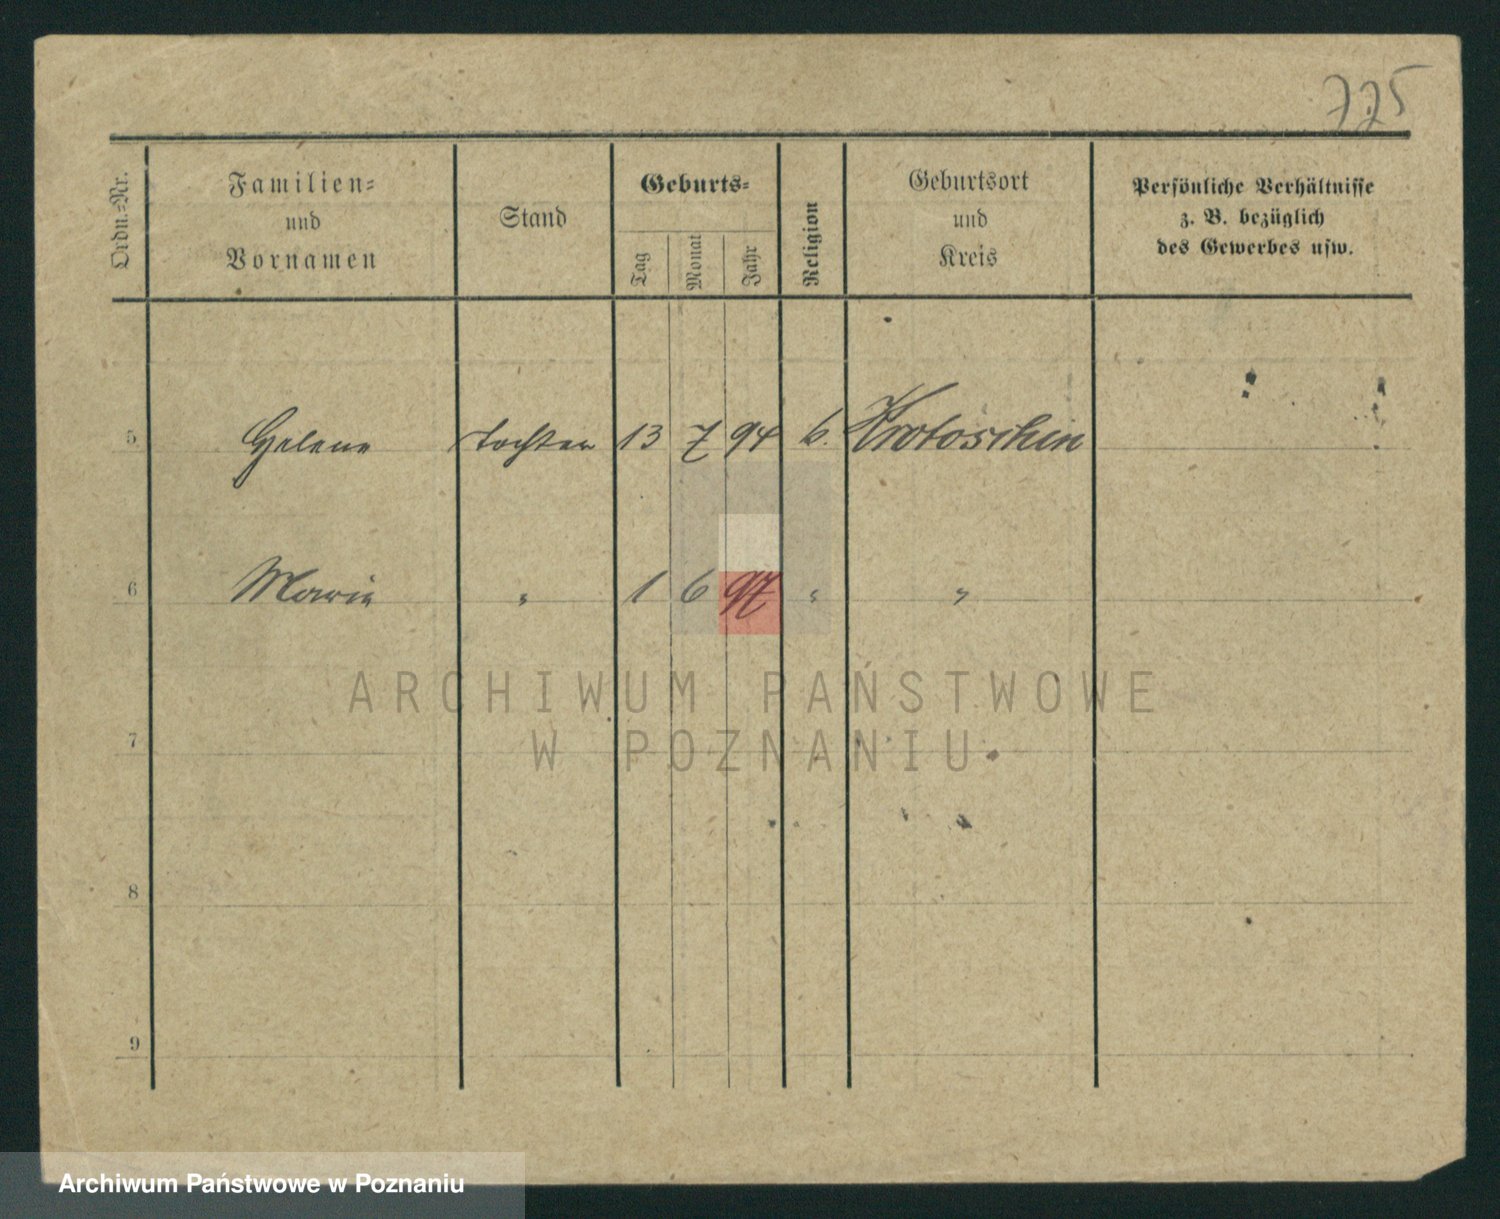 775
Ordn.-Nr.
Familien-
und
Vornamen
Stand
Geburts-
Tag
Monat
Jahr
Religion
Geburtsort
und
Kreis
Persönliche Verhältnisse
z. B. bezüglich
des Gewerbes usw.
5 Helene Tochter 13 7 94 Krotoschin
6 Marie " 1 6 97 " "
7
8
9
ARCHIWUM PAŃSTWOWE
W POZNANIU
Archiwum Państwowe w Poznaniu